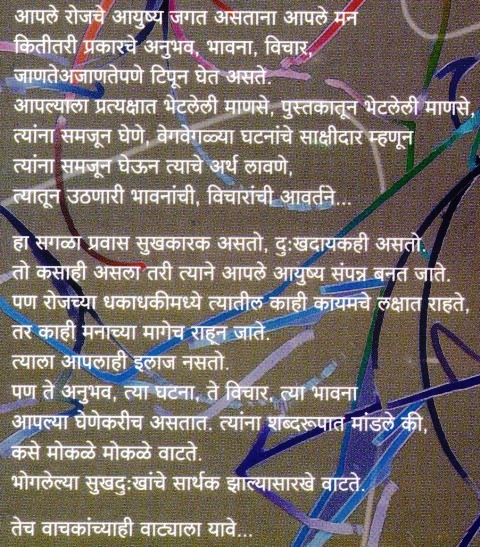 आपले रोजचे आयुष्य जगत असताना आपले मन
कितीतरी प्रकारचे अनुभव, भावना, विचार,
जाणतेअजाणतेपणे टिपून घेत असते.
आपल्याला प्रत्यक्षात भेटलेली माणसे, पुस्तकातून भेटलेली माणसे,
त्यांना समजून घेणे, वेगवेगळ्या घटनांचे साक्षीदार म्हणून
त्यांना समजून घेऊन त्याचे अर्थ लावणे,
त्यातून उठणारी भावनांची, विचारांची आवर्तने...
हा सगळा प्रवास सुखकारक असतो, दु:खदायकही असतो.
तो कसाही असला तरी त्याने आपले आयुष्य संपन्न बनत जाते.
पण रोजच्या धकाधकीमध्ये त्यातील काही कायमचे लक्षात राहते,
तर काही मनाच्या मागेच राहून जाते.
त्याला आपलाही इलाज नसतो.
पण ते अनुभव, त्या घटना, ते विचार, त्या भावना
आपल्या घेणेकरीच असतात. त्यांना शब्दरूपात मांडले की,
कसे मोकळे मोकळे वाटते.
भोगलेल्या सुखदु:खांचे सार्थक झाल्यासारखे वाटते.
तेच वाचकांच्याही वाट्याला यावे...